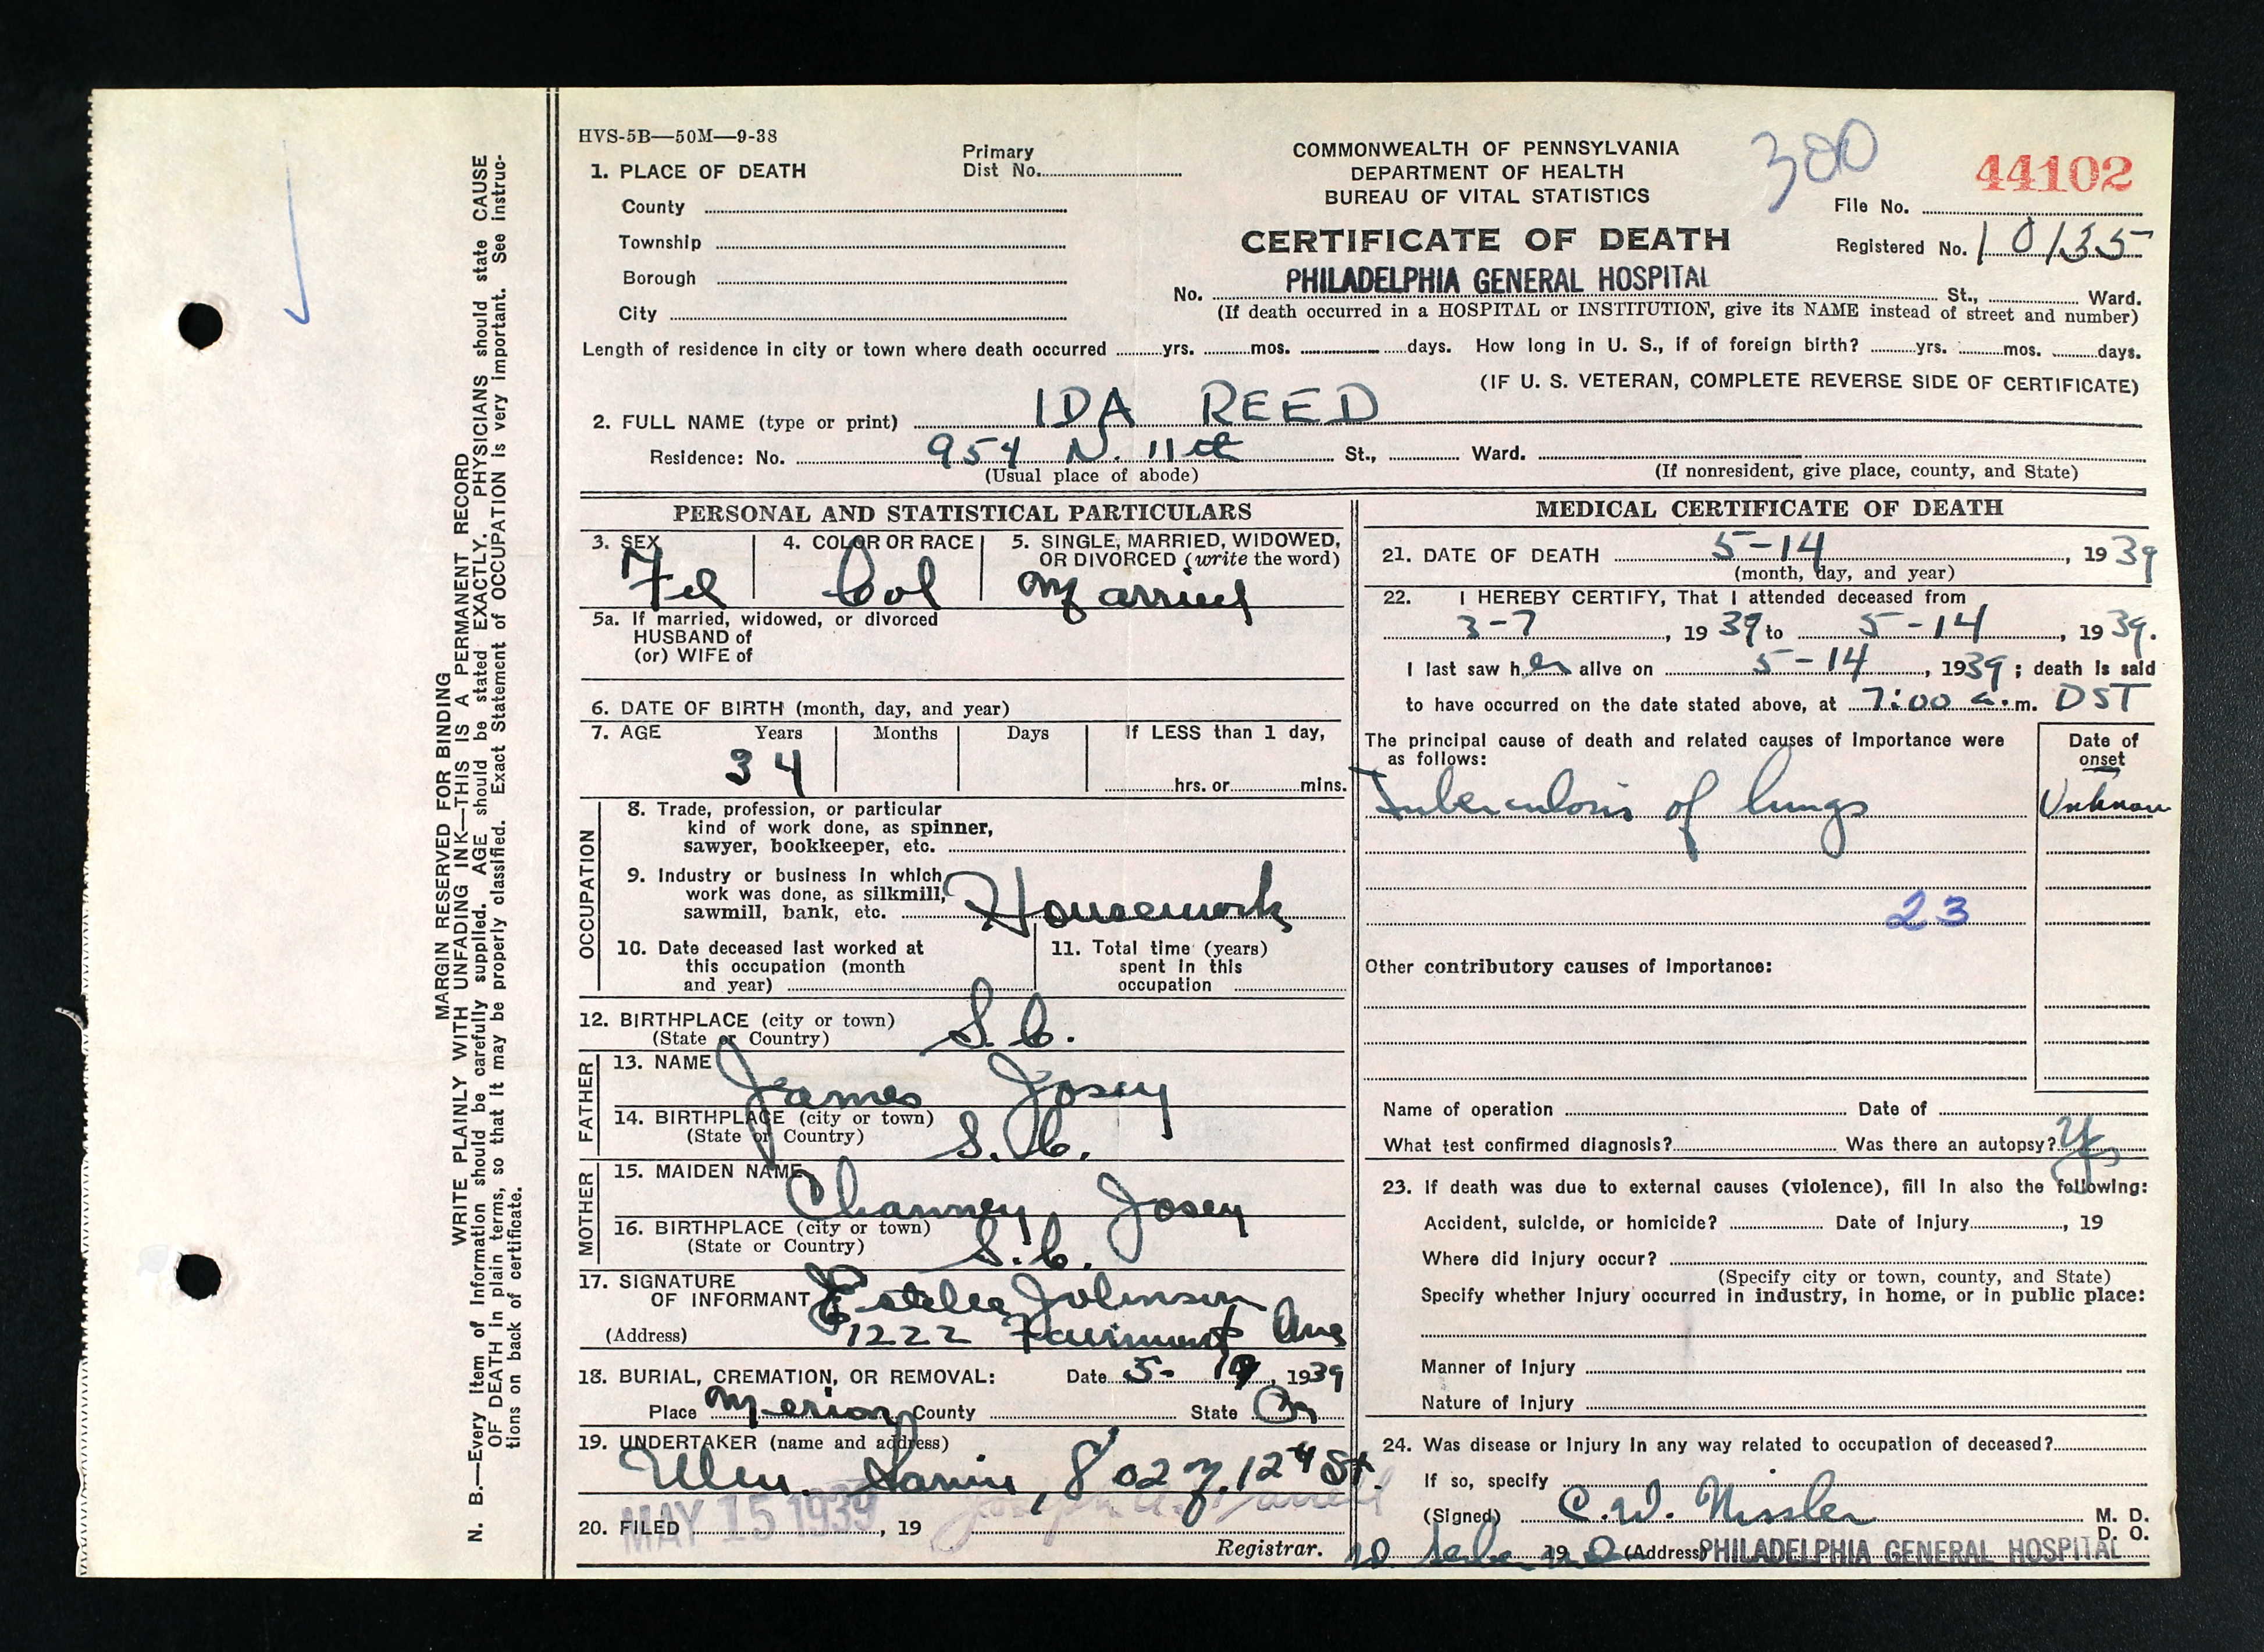 HVS-5B—50M—9-38
COMMONWEALTH OF PENNSYLVANIA
DEPARTMENT OF HEALTH
BUREAU OF VITAL STATISTICS
CERTIFICATE OF DEATH
300
44102
File No.
Registered No. 10135
1. PLACE OF DEATH
Primary
Dist No.
County
Township
Borough
City
PHILADELPHIA GENERAL HOSPITAL
No. St., Ward.
(If death occurred in a HOSPITAL or INSTITUTION, give its NAME instead of street and number)
Length of residence in city or town where death occurred yrs. mos. days. How long in U. S., if of foreign birth? yrs. mos. days.
(IF U. S. VETERAN, COMPLETE REVERSE SIDE OF CERTIFICATE)
2. FULL NAME (type or print) IDA REED
Residence: No. 954 N. 11th St., Ward.
(Usual place of abode) (If nonresident, give place, county, and State)
PERSONAL AND STATISTICAL PARTICULARS
3. SEX
Fel
4. COLOR OR RACE
Col
5. SINGLE, MARRIED, WIDOWED,
OR DIVORCED (write the word)
Married
5a. If married, widowed, or divorced
HUSBAND of
(or) WIFE of
6. DATE OF BIRTH (month, day, and year)
7. AGE Years Months Days If LESS than 1 day,
34
hrs. or mins.
OCCUPATION
8. Trade, profession, or particular
kind of work done, as spinner,
sawyer, bookkeeper, etc.
9. Industry or business in which
work was done, as silkmill,
sawmill, bank, etc. Housework
10. Date deceased last worked at
this occupation (month
and year)
11. Total time (years)
spent in this
occupation
12. BIRTHPLACE (city or town)
(State or Country) S.C.
FATHER
13. NAME James Josey
14. BIRTHPLACE (city or town)
(State or Country) S.C.
MOTHER
15. MAIDEN NAME Channey Josey
16. BIRTHPLACE (city or town)
(State or Country) S.C.
17. SIGNATURE
OF INFORMANT Estelle Johnson
(Address) 1222 Fairmont Ave
18. BURIAL, CREMATION, OR REMOVAL: Date 5- 1939
Place Merion County State Pa
19. UNDERTAKER (name and address)
Wm. 802 N. 12th St.
20. FILED MAY 15 1939, 19
Registrar.
MEDICAL CERTIFICATE OF DEATH
21. DATE OF DEATH 5-14, 1939
(month, day, and year)
22. I HEREBY CERTIFY, That I attended deceased from
3-7, 1939 to 5-14, 1939.
I last saw her alive on 5-14, 1939; death is said
to have occurred on the date stated above, at 7:00 a.m. DST
The principal cause of death and related causes of importance were
as follows:
Date of
onset
Tuberculosis of lungs Unknown
23
Other contributory causes of importance:
Name of operation Date of
What test confirmed diagnosis? Was there an autopsy? Yes
23. If death was due to external causes (violence), fill in also the following:
Accident, suicide, or homicide? Date of injury, 19
Where did injury occur?
(Specify city or town, county, and State)
Specify whether injury occurred in industry, in home, or in public place:
Manner of injury
Nature of injury
24. Was disease or injury in any way related to occupation of deceased?
If so, specify
(Signed) C.W. Nissler M. D.
D. O.
19 (Address) PHILADELPHIA GENERAL HOSPITAL
MARGIN RESERVED FOR BINDING
WRITE PLAINLY WITH UNFADING INK—THIS IS A PERMANENT RECORD
N. B.—Every item of information should be carefully supplied. AGE should be stated EXACTLY. PHYSICIANS should state CAUSE
OF DEATH in plain terms, so that it may be properly classified. Exact Statement of OCCUPATION is very important. See instruc-
tions on back of certificate.